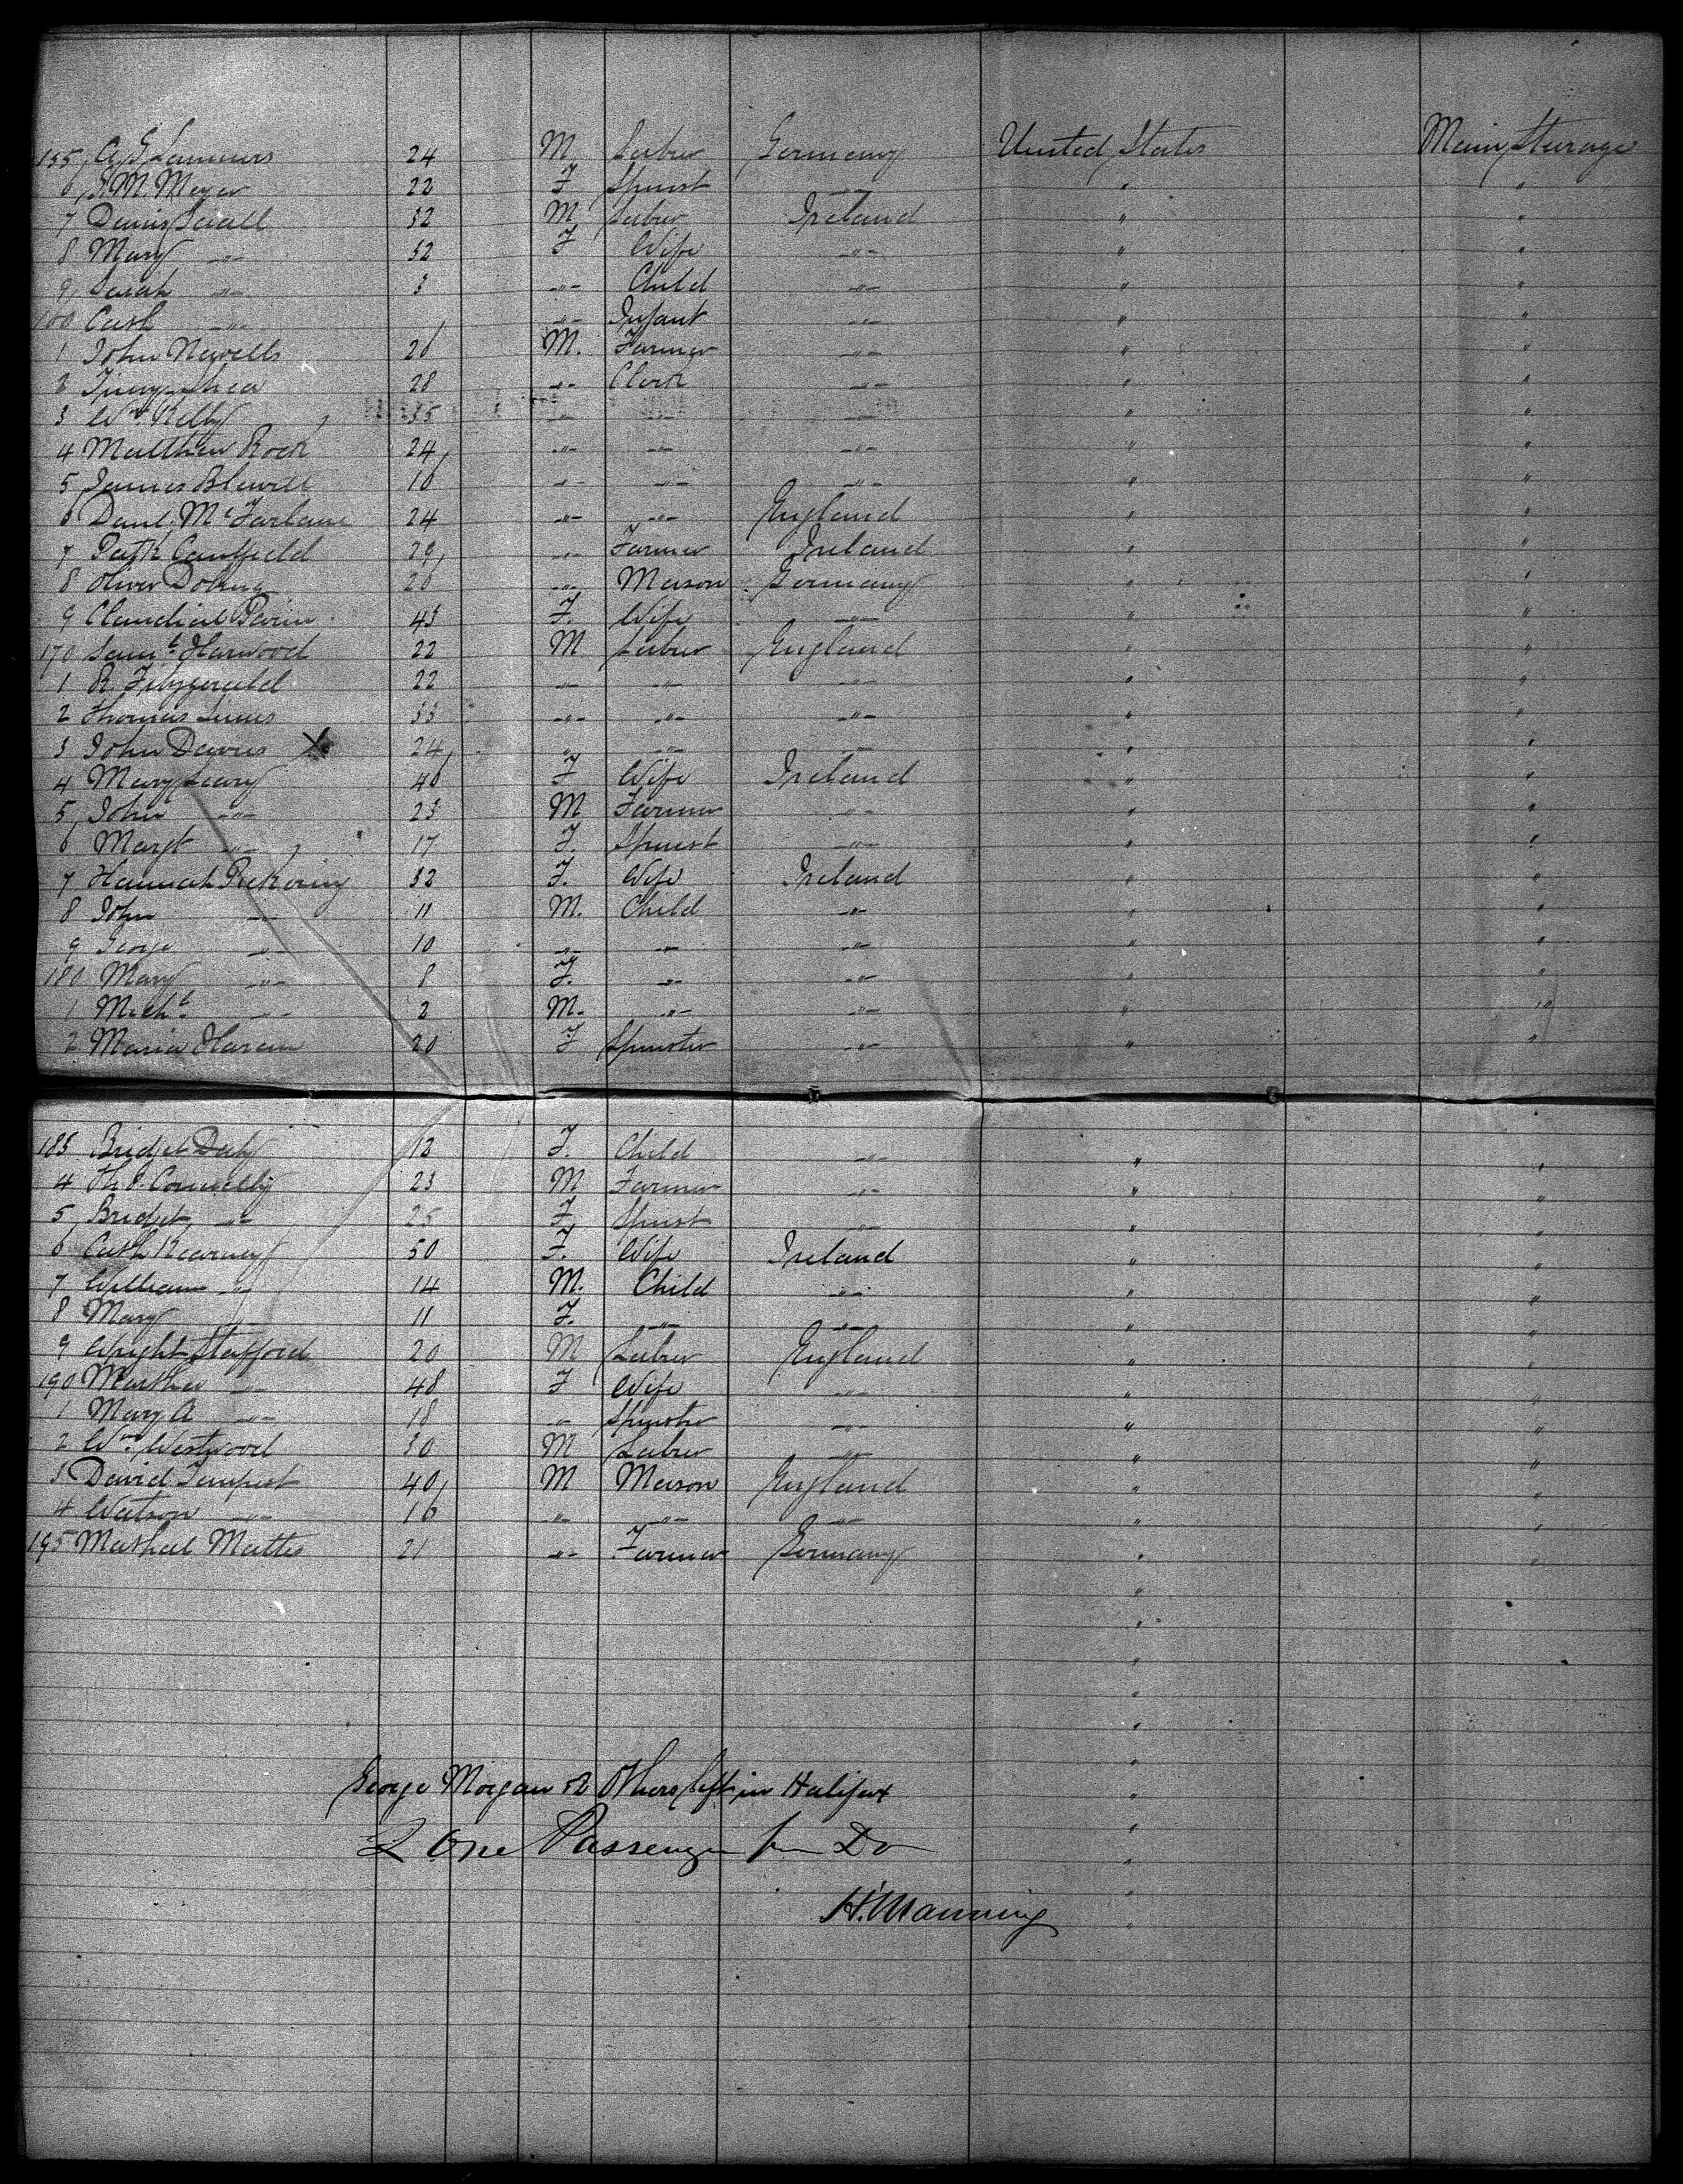 155 A. G. Lammers 24 M Labrer Germany United States Main Sturage
6 F. M. Meyer 22 F Spinst -"- " "
7 Denis 32 M Labrer Ireland " "
8 Mary -"- 32 F Wife -"- " "
9 Sarah -"- 3 -"- Child -"- " "
160 Cath -"- 1 -"- Infant -"- " "
1 John Newells 26 M. Farmer -"- " "
2 Shea 28 -"- Clerk -"- " "
3 Wm. Kelly 35 -"- -"- -"- " "
4 Matthew Rock 24 -"- -"- -"- " "
5 James Blewill 16 -"- -"- -"- " "
6 Danl. McFarlane 24 -"- -"- England " "
7 Patk Caulfield 29 -"- Farmer Ireland " "
8 Oliver 26 -"- Mason Germany " "
9 43 F. Wife -"- " "
170 Saml. Harwood 22 M Labrer England " "
1 R. Fitzgerald 22 -"- -"- -"- " "
2 Thomas Simms 33 -"- -"- -"- " "
3 John Davies X 24 " -"- -"- " "
4 Mary Leary 46 F Wife Ireland " "
5 John -"- 23 M Farmer -"- " "
6 Margt -"- 17 F. Spinst -"- " "
7 Hannah Pickering 32 F. Wife Ireland " "
8 John -"- 11 M. Child -"- " "
9 George -"- 10 -"- -"- -"- " "
180 Mary -"- 8 F. -"- -"- " "
1 Michl. -"- 2 M. -"- -"- " "
2 Maria Haram 20 F Spinster -"- " "
183 Bridget Daly 12 F. Child -"- " "
4 Ths. Connelly 23 M Farmer -"- " "
5 Bridget -"- 25 F Spinst -"- " "
6 Cath Kearney 50 F. Wife Ireland " "
7 William -"- 14 M. Child -"- " "
8 Mary -"- 11 F. -"- -"- " "
9 Wright Stafford 20 M Labrer England " "
190 Martha -"- 48 F Wife -"- " "
1 Mary A -"- 18 -"- Spinster -"- " "
2 Wm. Westwood 30 M Labrer -"- " "
3 David Tempest 40 M Mason England " "
4 Watson -"- 16 -"- -"- -"- " "
195 Mathal Mattes 21 -"- Farmer Germany " "
George Morgan & 2 Others left in Halifax
& One Passenger from Do
H. Manning